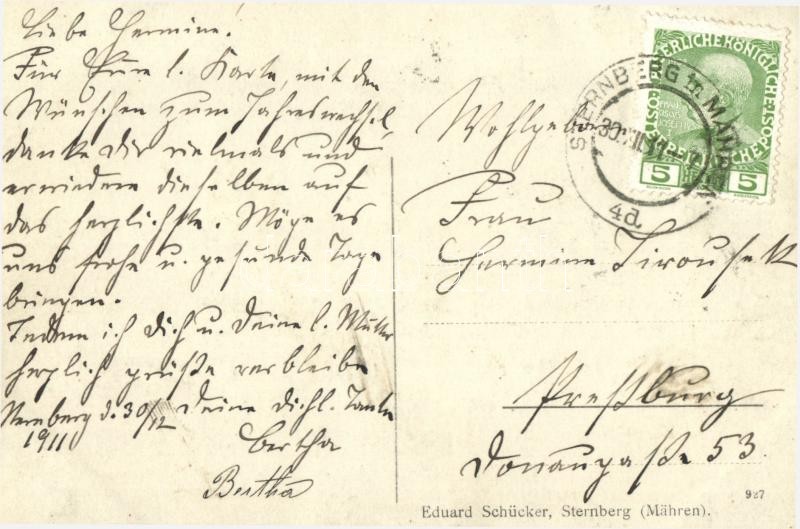 Liebe Hermine!
Für Eure l. Karte, mit den
Wünschen zum Jahreswechsel,
danke Dir vielmals und
erwiedere dieselben auf
das herzlichste. Möge es
uns frohe u. gesunde Tage
bringen.
Indem ich Dich u. Deine l. Mutter
herzlich grüße verbleibe
Sternberg d. 30/12 Deine Dichl. Tante
1911
Bertha
Bertha
STERNBERG in MÄHREN
30.XII.11
4d
KAISERLICHE KÖNIGLICHE
5 5
Wohlgeboren
Frau
Hermine Tirousek
Preßburg
Donaugaße 53.
927
Eduard Schücker, Sternberg (Mähren).